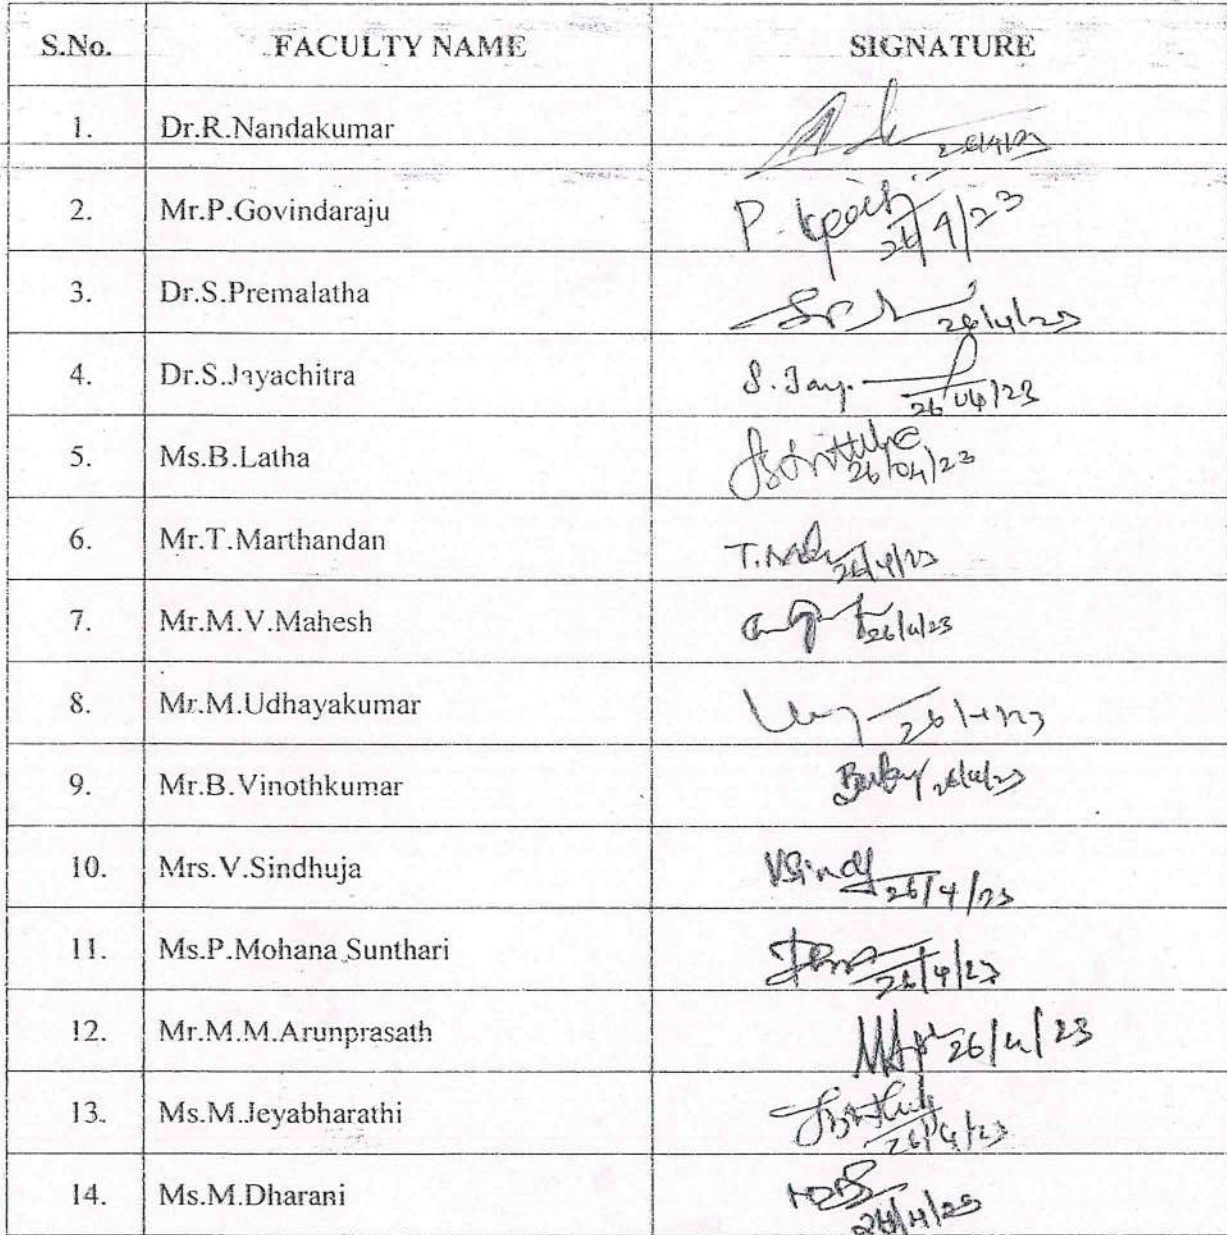 S.No. FACULTY NAME SIGNATURE
1. Dr.R.Nandakumar 26/4/23
2. Mr.P.Govindaraju P. 26/4/23
3. Dr.S.Premalatha 26/4/23
4. Dr.S.Jayachitra S.Jay. 26/04/23
5. Ms.B.Latha 26/04/23
6. Mr.T.Marthandan T. 26/4/23
7. Mr.M.V.Mahesh 26/4/23
8. Mr.M.Udhayakumar 26/4/23
9. Mr.B.Vinothkumar 26/4/23
10. Mrs.V.Sindhuja VSindy 26/4/23
11. Ms.P.Mohana Sunthari 26/4/23
12. Mr.M.M.Arunprasath 26/4/23
13. Ms.M.Jeyabharathi 26/4/23
14. Ms.M.Dharani 26/4/23